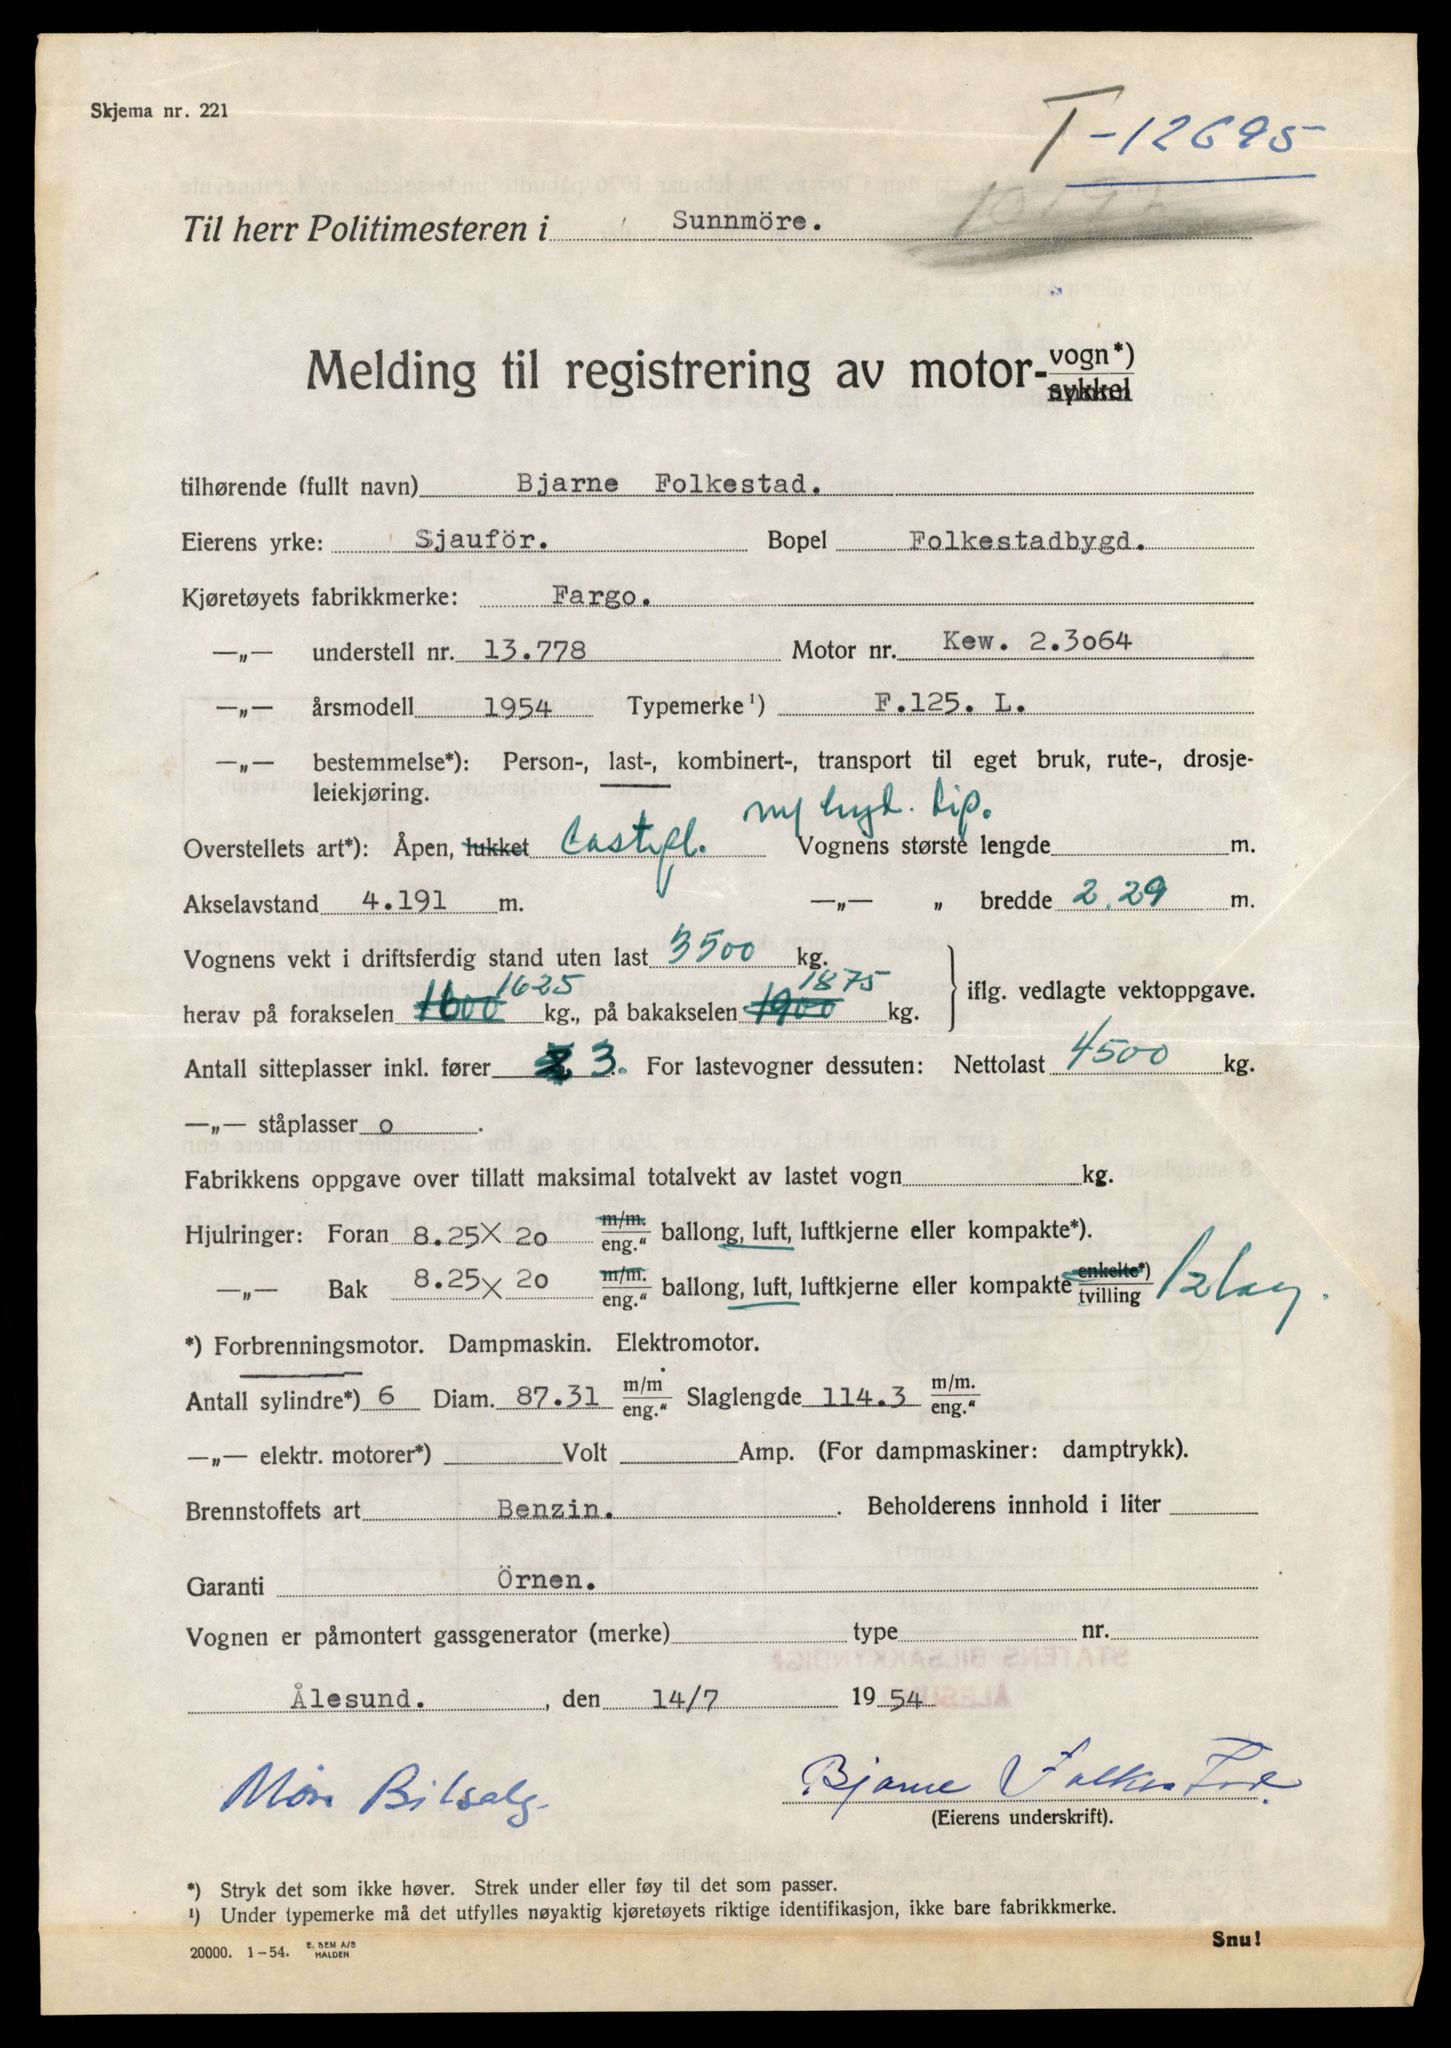 Skjema nr. 221
T-12695
Til herr Politimesteren i Sunnmöre.
Melding til registrering av motor-vogn*)
sykkel
tilhørende (fullt navn) Bjarne Folkestad.
Eierens yrke: Sjauför. Bopel Folkestadbygd.
Kjøretøyets fabrikkmerke: Fargo.
—„— understell nr. 13.778 Motor nr. Kew. 2.3o64
—„— årsmodell 1954 Typemerke¹) F.125. L.
—„— bestemmelse*): Person-, last-, kombinert-, transport til eget bruk, rute-, drosje-
leiekjøring.
ny hyd. tip.
Overstellets art*): Åpen, lukket Lastepl. Vognens største lengde m.
Akselavstand 4.191 m. —„— „ bredde 2.29 m.
Vognens vekt i driftsferdig stand uten last 3500 kg.
1625 1875
herav på forakselen 1600 kg., på bakakselen 1900 kg. iflg. vedlagte vektoppgave.
Antall sitteplasser inkl. fører 3. For lastevogner dessuten: Nettolast 4500 kg.
—„— ståplasser o .
Fabrikkens oppgave over tillatt maksimal totalvekt av lastet vogn kg.
Hjulringer: Foran 8.25 X 20 m/m. eng.“ ballong, luft, luftkjerne eller kompakte*).
—„— Bak 8.25 X 20 m/m. eng.“ ballong, luft, luftkjerne eller kompakte enkelte*) tvilling 12 lag.
*) Forbrenningsmotor. Dampmaskin. Elektromotor.
Antall sylindre*) 6 Diam. 87.31 m/m eng.“ Slaglengde 114.3 m/m. eng.“
—„— elektr. motorer*) Volt Amp. (For dampmaskiner: damptrykk).
Brennstoffets art Benzin. . Beholderens innhold i liter
Garanti Örnen.
Vognen er påmontert gassgenerator (merke) type nr.
Ålesund. , den 14/7 19 54
Møre Bilsalg. Bjarne Folkestad.
(Eierens underskrift).
*) Stryk det som ikke høver. Strek under eller føy til det som passer.
¹) Under typemerke må det utfylles nøyaktig kjøretøyets riktige identifikasjon, ikke bare fabrikkmerke.
20000. 1-54. E. SEM A/S HALDEN
Snu!